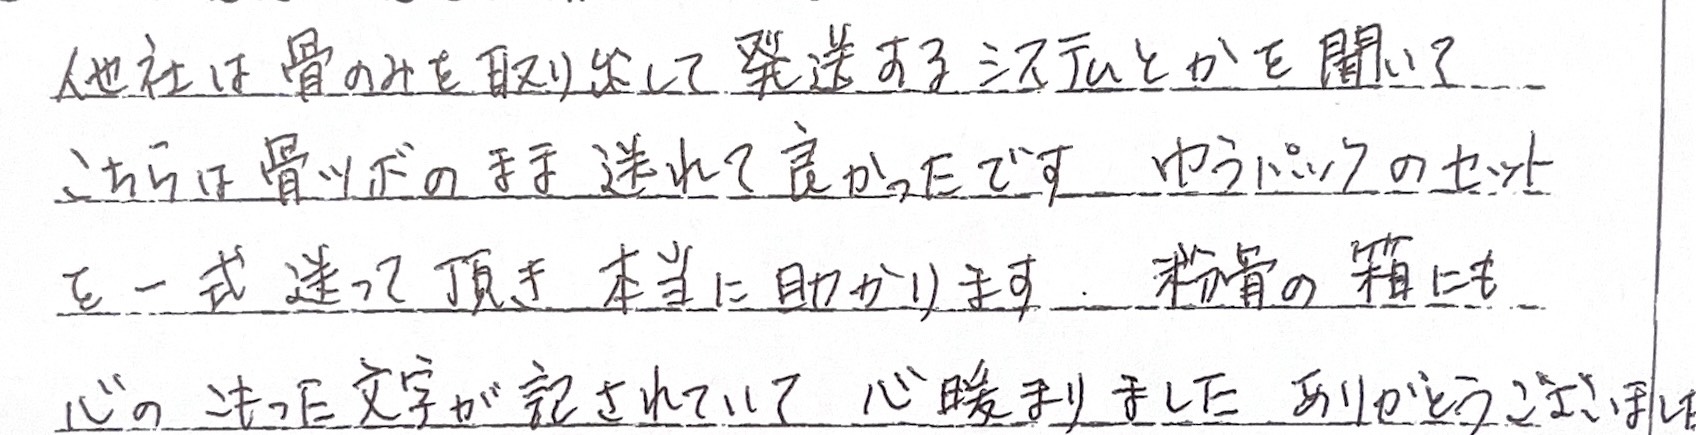 他社は骨のみを取り出して発送するシステムとかを聞いて
こちらは骨ツボのまま送れて良かったです ゆうパックのセット
を一式送って頂き本当に助かります. 粉骨の箱にも
心のこもった文字が記されていて 心暖まりました ありがとうございました